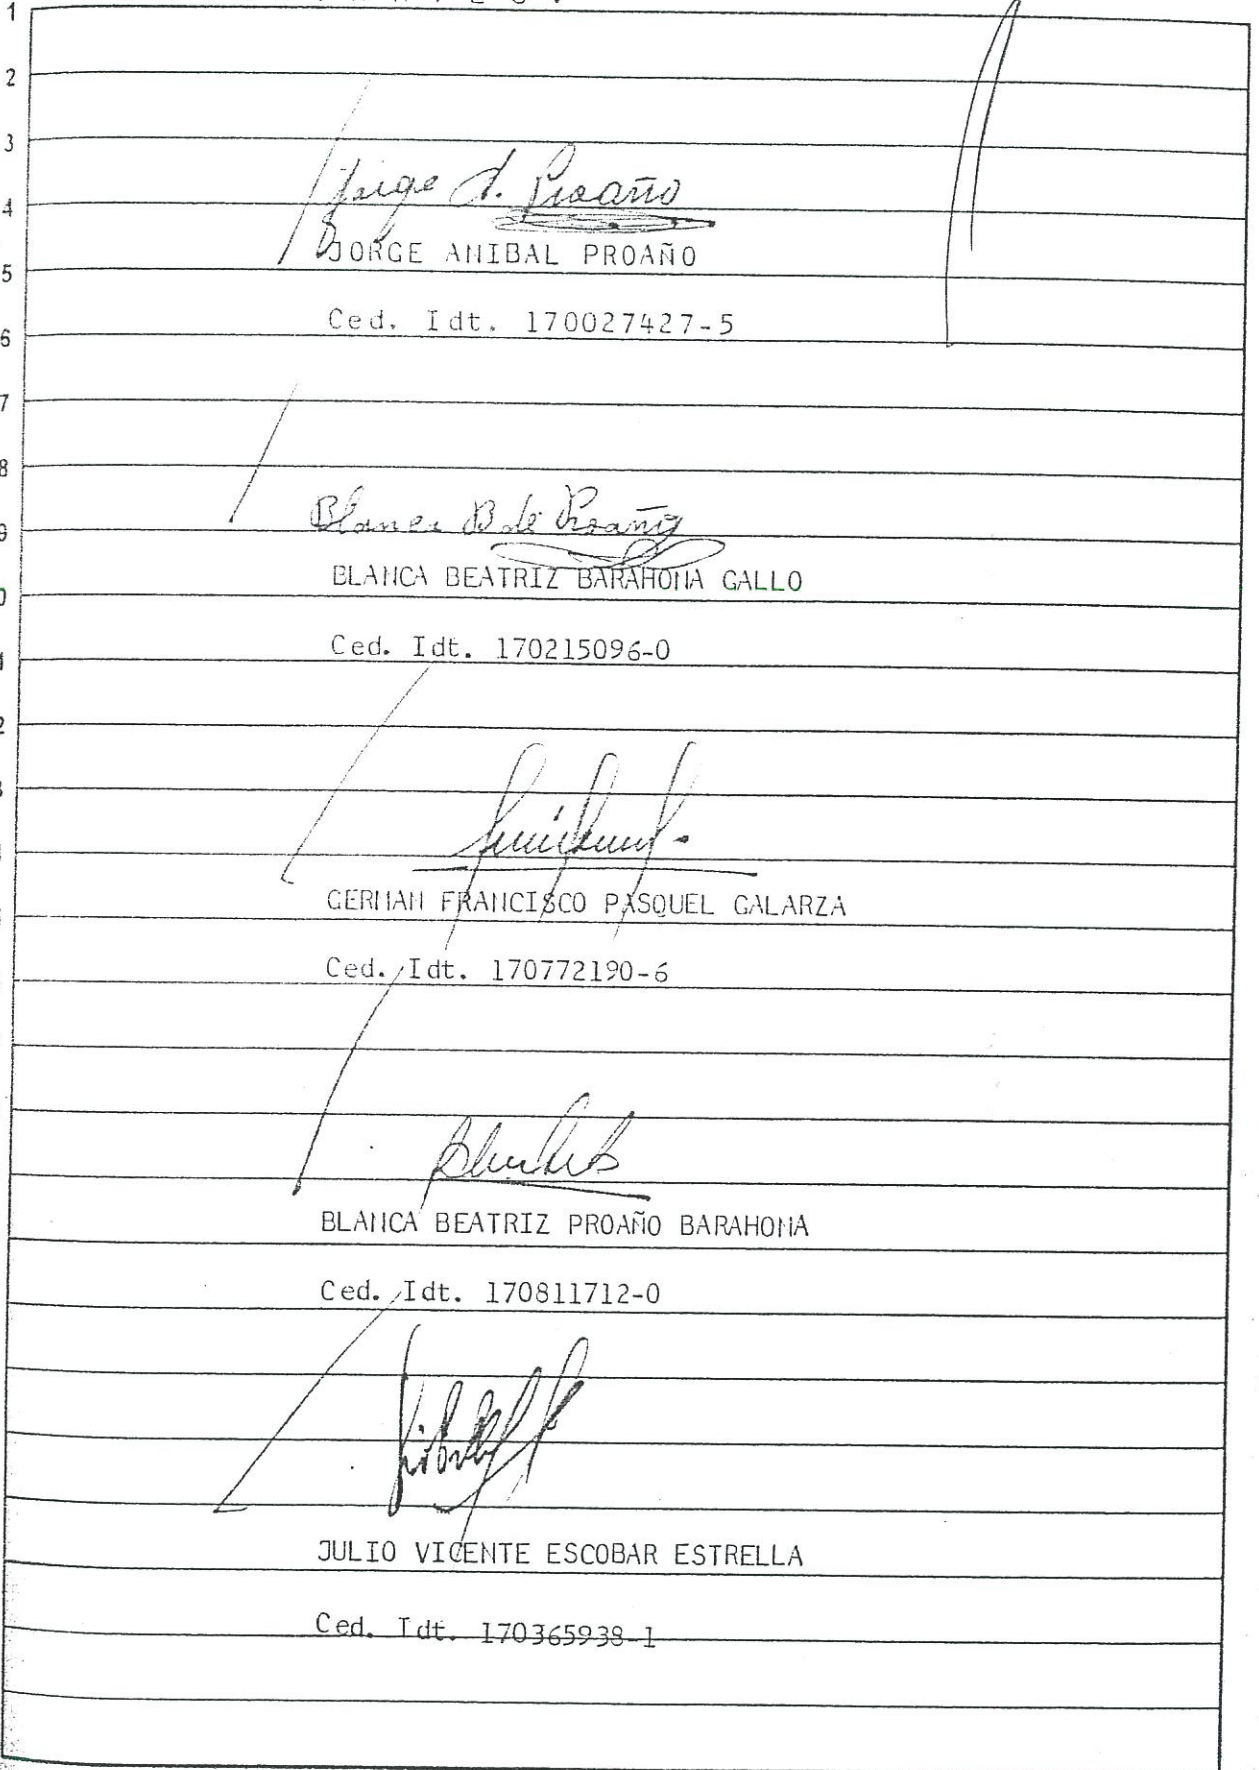 1
2
3
Jorge A. Proaño
4
JORGE ANIBAL PROAÑO
5
Ced. Idt. 170027427-5
6
7
8
Blanca B de Proaño
9
BLANCA BEATRIZ BARAHONA GALLO
0
Ced. Idt. 170215096-0
2
GERMAN FRANCISCO PASQUEL GALARZA
Ced. Idt. 170772190-6
BLANCA BEATRIZ PROAÑO BARAHONA
Ced. Idt. 170811712-0
JULIO VICENTE ESCOBAR ESTRELLA
Ced. Idt. 170365938-1